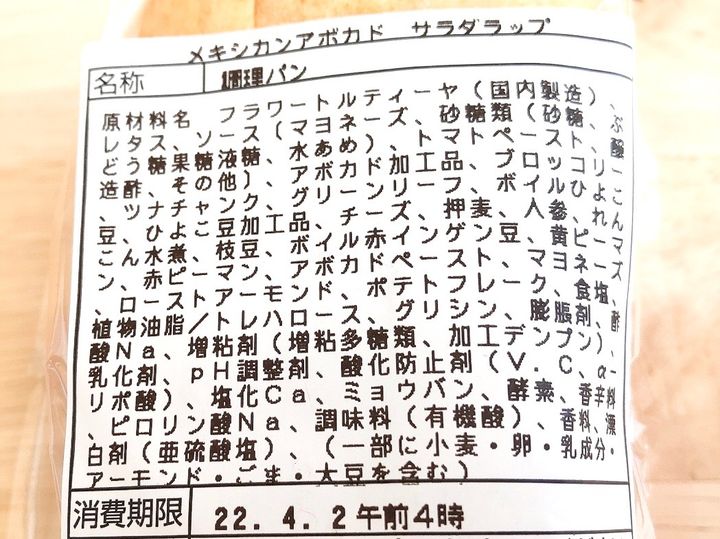 メキシカンアボカド サラダラップ
名称 調理パン
原材料名 フラワートルティーヤ（国内製造）、
レタス、ソース（マヨネーズ、砂糖類（砂糖、ぶ
どう糖果糖液糖、水あめ）、トマトペースト、醸
造酢、その他）、アボカド加工品、ブロッコリー
、ツナチャンク、グリーンリーフ、ボイルひよこ
豆、ひよこ豆加工品、チーズ、押麦、人参、れん
こん水煮、枝豆、ボイル赤インゲン豆、黄ピーマ
ン、赤ピーマン、アボカドペースト、マヨネーズ
、ローストアーモンド、ポテトフレーク、食塩、
植物油脂／トレハロース、グリシン、膨脹剤、酢
酸Ｎａ、増粘剤（増粘多糖類、加工デンプン）、
乳化剤、ｐＨ調整剤、酸化防止剤（Ｖ．Ｃ、α－
リポ酸）、塩化Ｃａ、ミョウバン、酵素、香辛料
、ピロリン酸Ｎａ、調味料（有機酸）、香料、漂
白剤（亜硫酸塩）、（一部に小麦・卵・乳成分・
アーモンド・ごま・大豆を含む）
消費期限 22．4．2午前4時